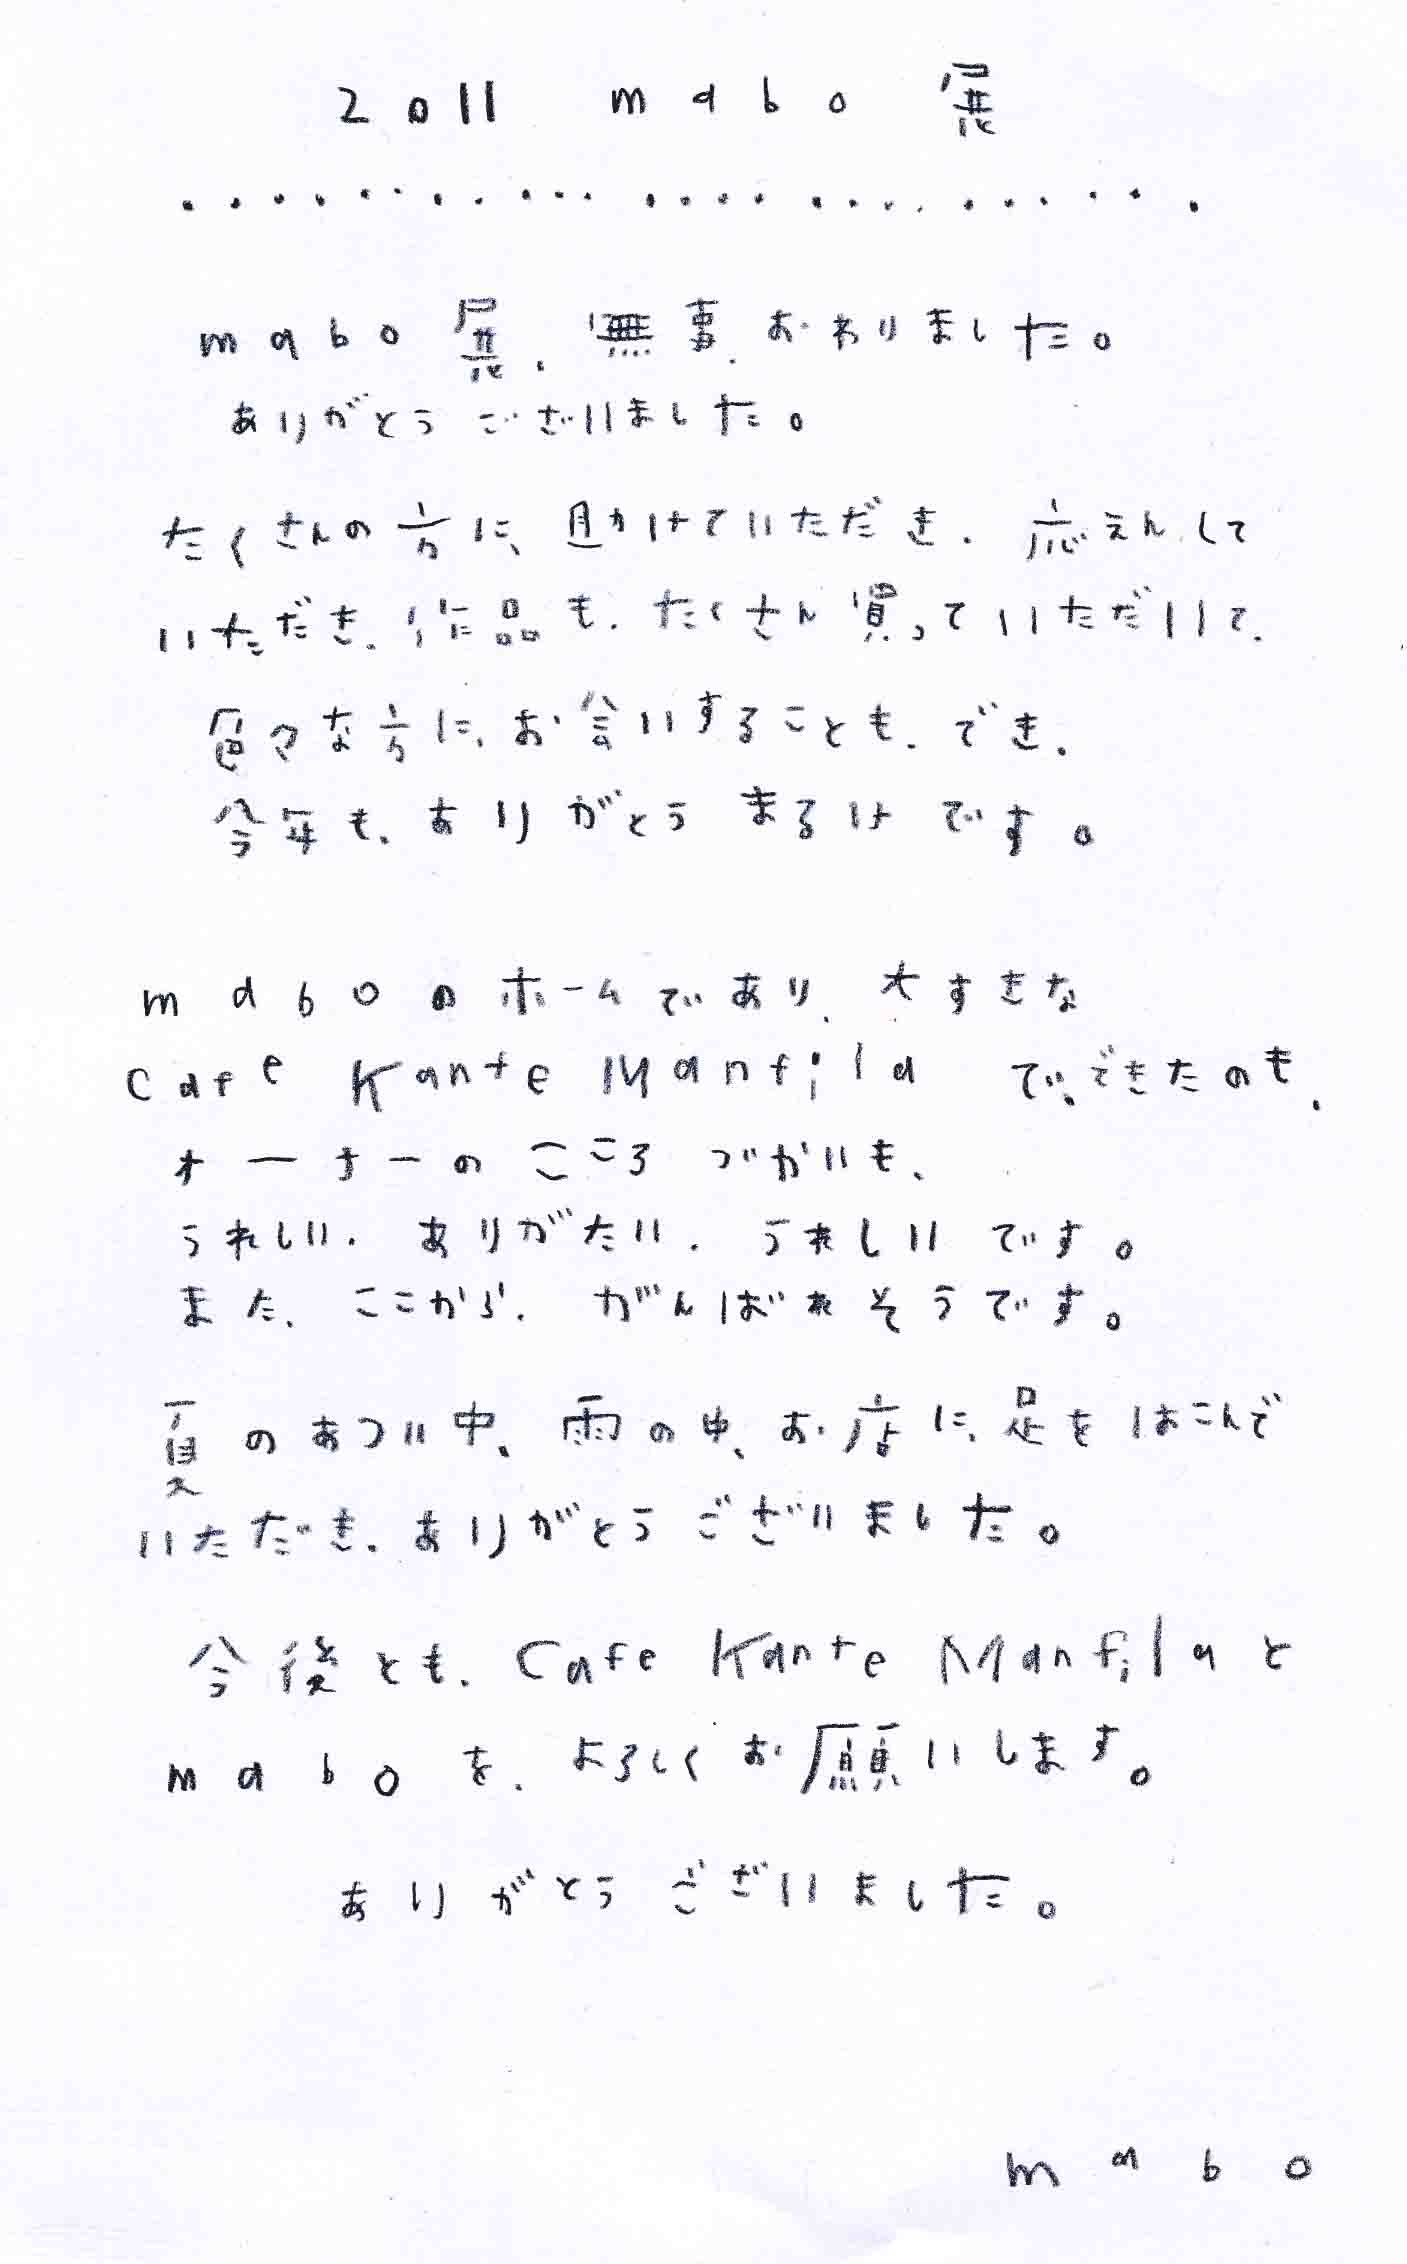 2011 mabo 展
mabo 展、無事、おわりました。
ありがとう ございました。
たくさんの方に、助けていただき、応えんして
いただき、作品も、たくさん買っていただいて、
色々な方に、お会いすることも、でき、
今年も、ありがとう まるけです。
maboのホームであり、大すきな
Cafe Kante Manfila で、できたのも、
オーナーのこころづかいも、
うれしい、ありがたい、うれしいです。
また、ここから、がんばれそうです。
夏のあつい中、雨の中、お店に、足をはこんで
いただき、ありがとうございました。
今後とも、Cafe Kante Manfilaと
maboを、よろしくお願いします。
ありがとう ございました。
mabo